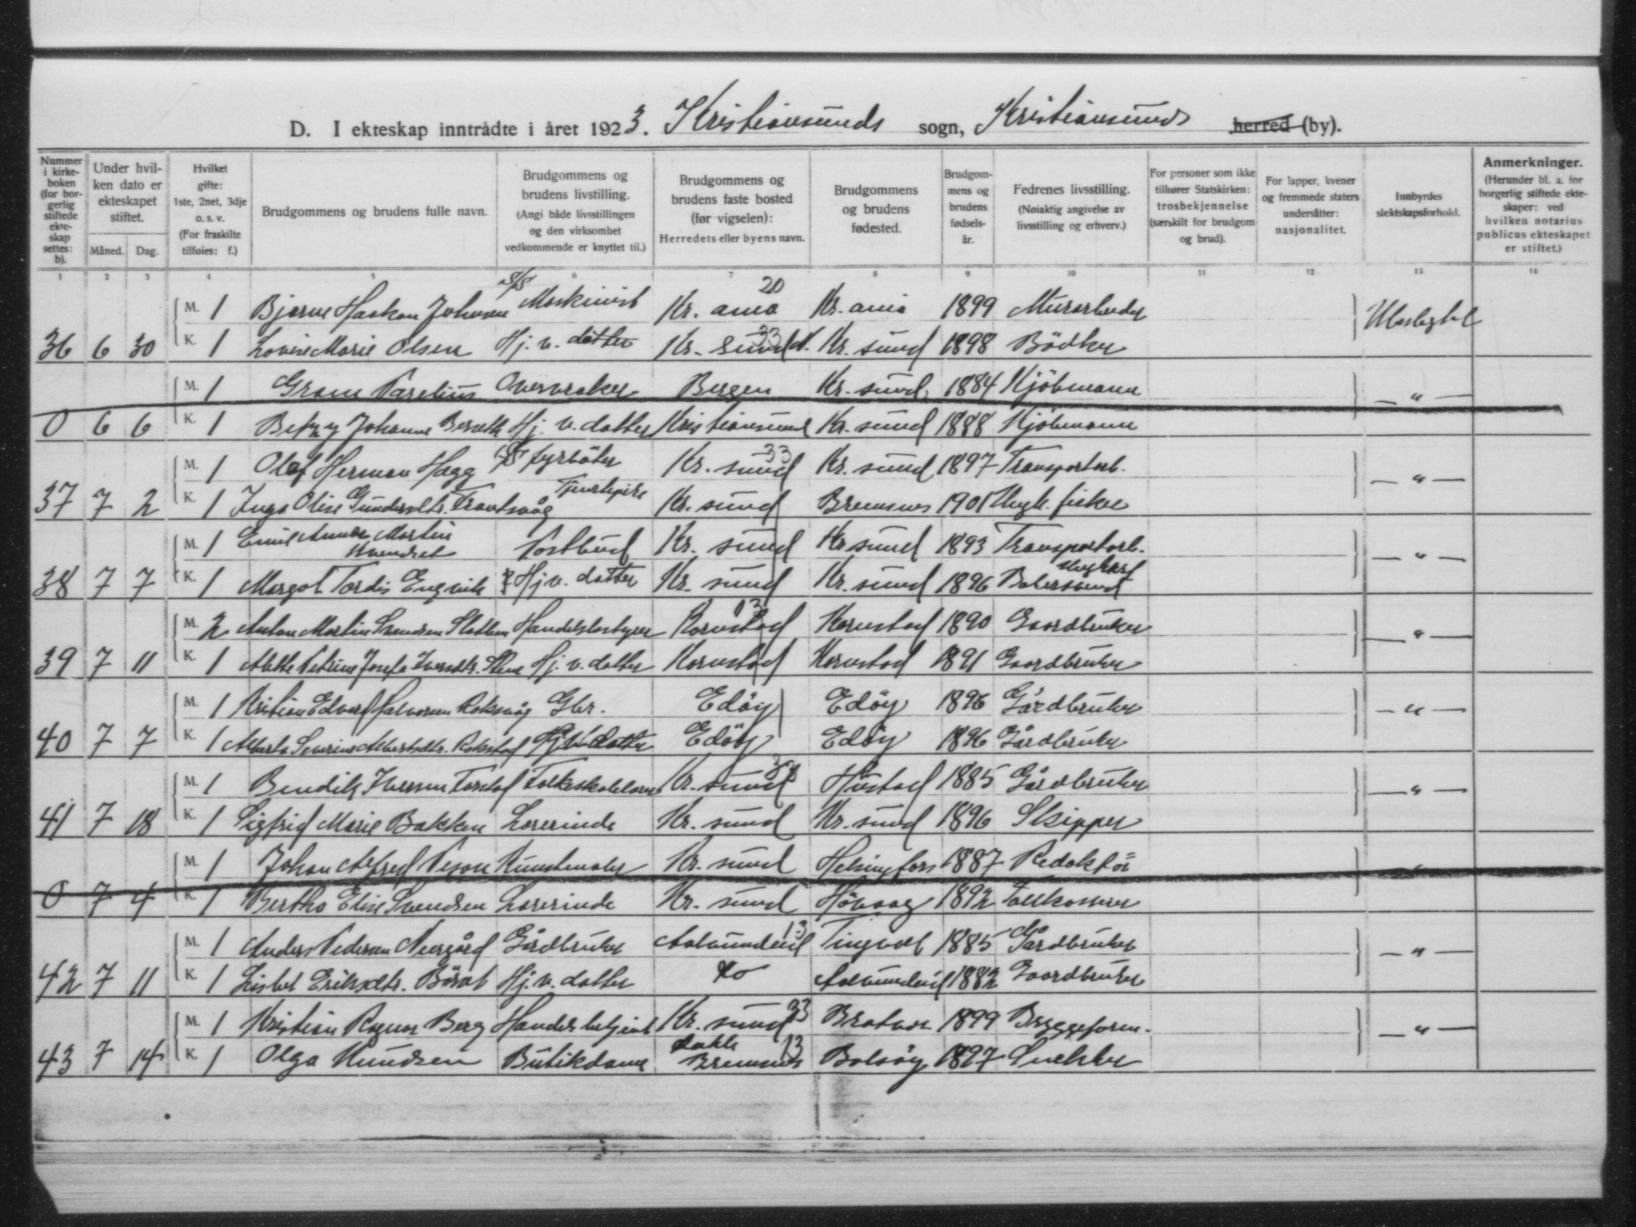 D. I ekteskap inntrådte i året 1923. Kristiansunds sogn, Kristiansunds herred (by).
Nummer i kirkeboken (for borgerlig stiftede ekteskap settes: b).
Under hvilken dato er ekteskapet stiftet.
Måned. Dag.
Hvilket gifte: 1ste, 2net, 3dje o. s. v. (For fraskilte tilføies: f.)
Brudgommens og brudens fulle navn.
Brudgommens og brudens livstilling. (Angi både livsstillingen og den virksomhet vedkommende er knyttet til.)
Brudgommens og brudens faste bosted (før vigselen): Herredets eller byens navn.
Brudgommens og brudens fødested.
Brudgommens og brudens fødselsår.
Fedrenes livsstilling. (Nøiaktig angivelse av livsstilling og erhverv.)
For personer som ikke tilhører Statskirken: trosbekjennelse (særskilt for brudgom og brud).
For lapper, kvener og fremmede staters undersåtter: nasjonalitet.
Innbyrdes slektskapsforhold.
Anmerkninger. (Herunder bl. a. for borgerlig stiftede ekteskaper: ved hvilken notarius publicus ekteskapet er stiftet.)
1 2 3 4 5 6 7 8 9 10 11 12 13 14
M. 1 Bjarne Haakon Johnsen S/S Maskinist Kr. ania 20 Kr. ania 1899 Murarbeider
36 6 30 K. 1 Lovise Marie Olsen Hj. v. datter Kr. sund 33 Kr. sund 1898 Bödker
M. 1 Gram Parelius Overvraker Bergen Kr. sund 1884 Kjöbmann „
0 6 6 K. 1 Betzy Johanne Hj. v. datter Kristiansund Kr. sund 1888 Kjöbmann
M. 1 Olaf Herman Hagg S/S fyrböter Kr. sund 33 Kr. sund 1897 Transportarb. „
37 7 2 K. 1 Inga Oline Gundersdtr. Tjenestepike Kr. sund Bremsnes 1901 Ungk. fisker
M. 1 Emil Martin Postbud Kr. sund Kr. sund 1893 Transportarb. „
38 7 7 K. 1 Margot Tordis Engvik Hj. v. datter Kr. sund Kr. sund 1896 Ungkarl
M. 2 Anton Martin Handelsbestyrer Kornstad 13 Kornstad 1890 Gaardbruker „
39 7 11 K. 1 Petrine Josefa Hj. v. datter Kornstad Kornstad 1891 Gaardbruker
M. 1 Kristian Edvard Halvorsen Gbr. Edöy Edöy 1896 Gårdbruker „
40 7 7 K. 1 Severine Albertsdtr. Rokstad Hj. v. datter Edöy Edöy 1896 Gårdbruker
M. 1 Bendik Iversen Folkeskolelærer Kr. sund Hustad 1885 Gårdbruker „
41 7 18 K. 1 Sigfrid Marie Bakken Lærerinde Kr. sund Kr. sund 1896 Skipper
M. 1 Johan Alfred Kunstmaler Kr. sund Helsingfors 1887 Redaktör „
0 7 4 K. 1 Bertha Elise Svendsen Lærerinde Kr. sund Hövaag 1892 Tollkasserer
M. 1 Anders Pedersen Neergård Gårdbruker 13 Tingvoll 1885 Gårdbruker „
42 7 11 K. 1 Lisbet Eriksdtr. Hj. v. datter do 1882 Gaardbruker
M. 1 Kristian Ragnar Berg Handelsbetjent Kr. sund 33 Brattvær 1899 Bryggeform. „
43 7 14 K. 1 Olga Knudsen Butikdame Bremsnes 13 Bolsöy 1897 Snekker